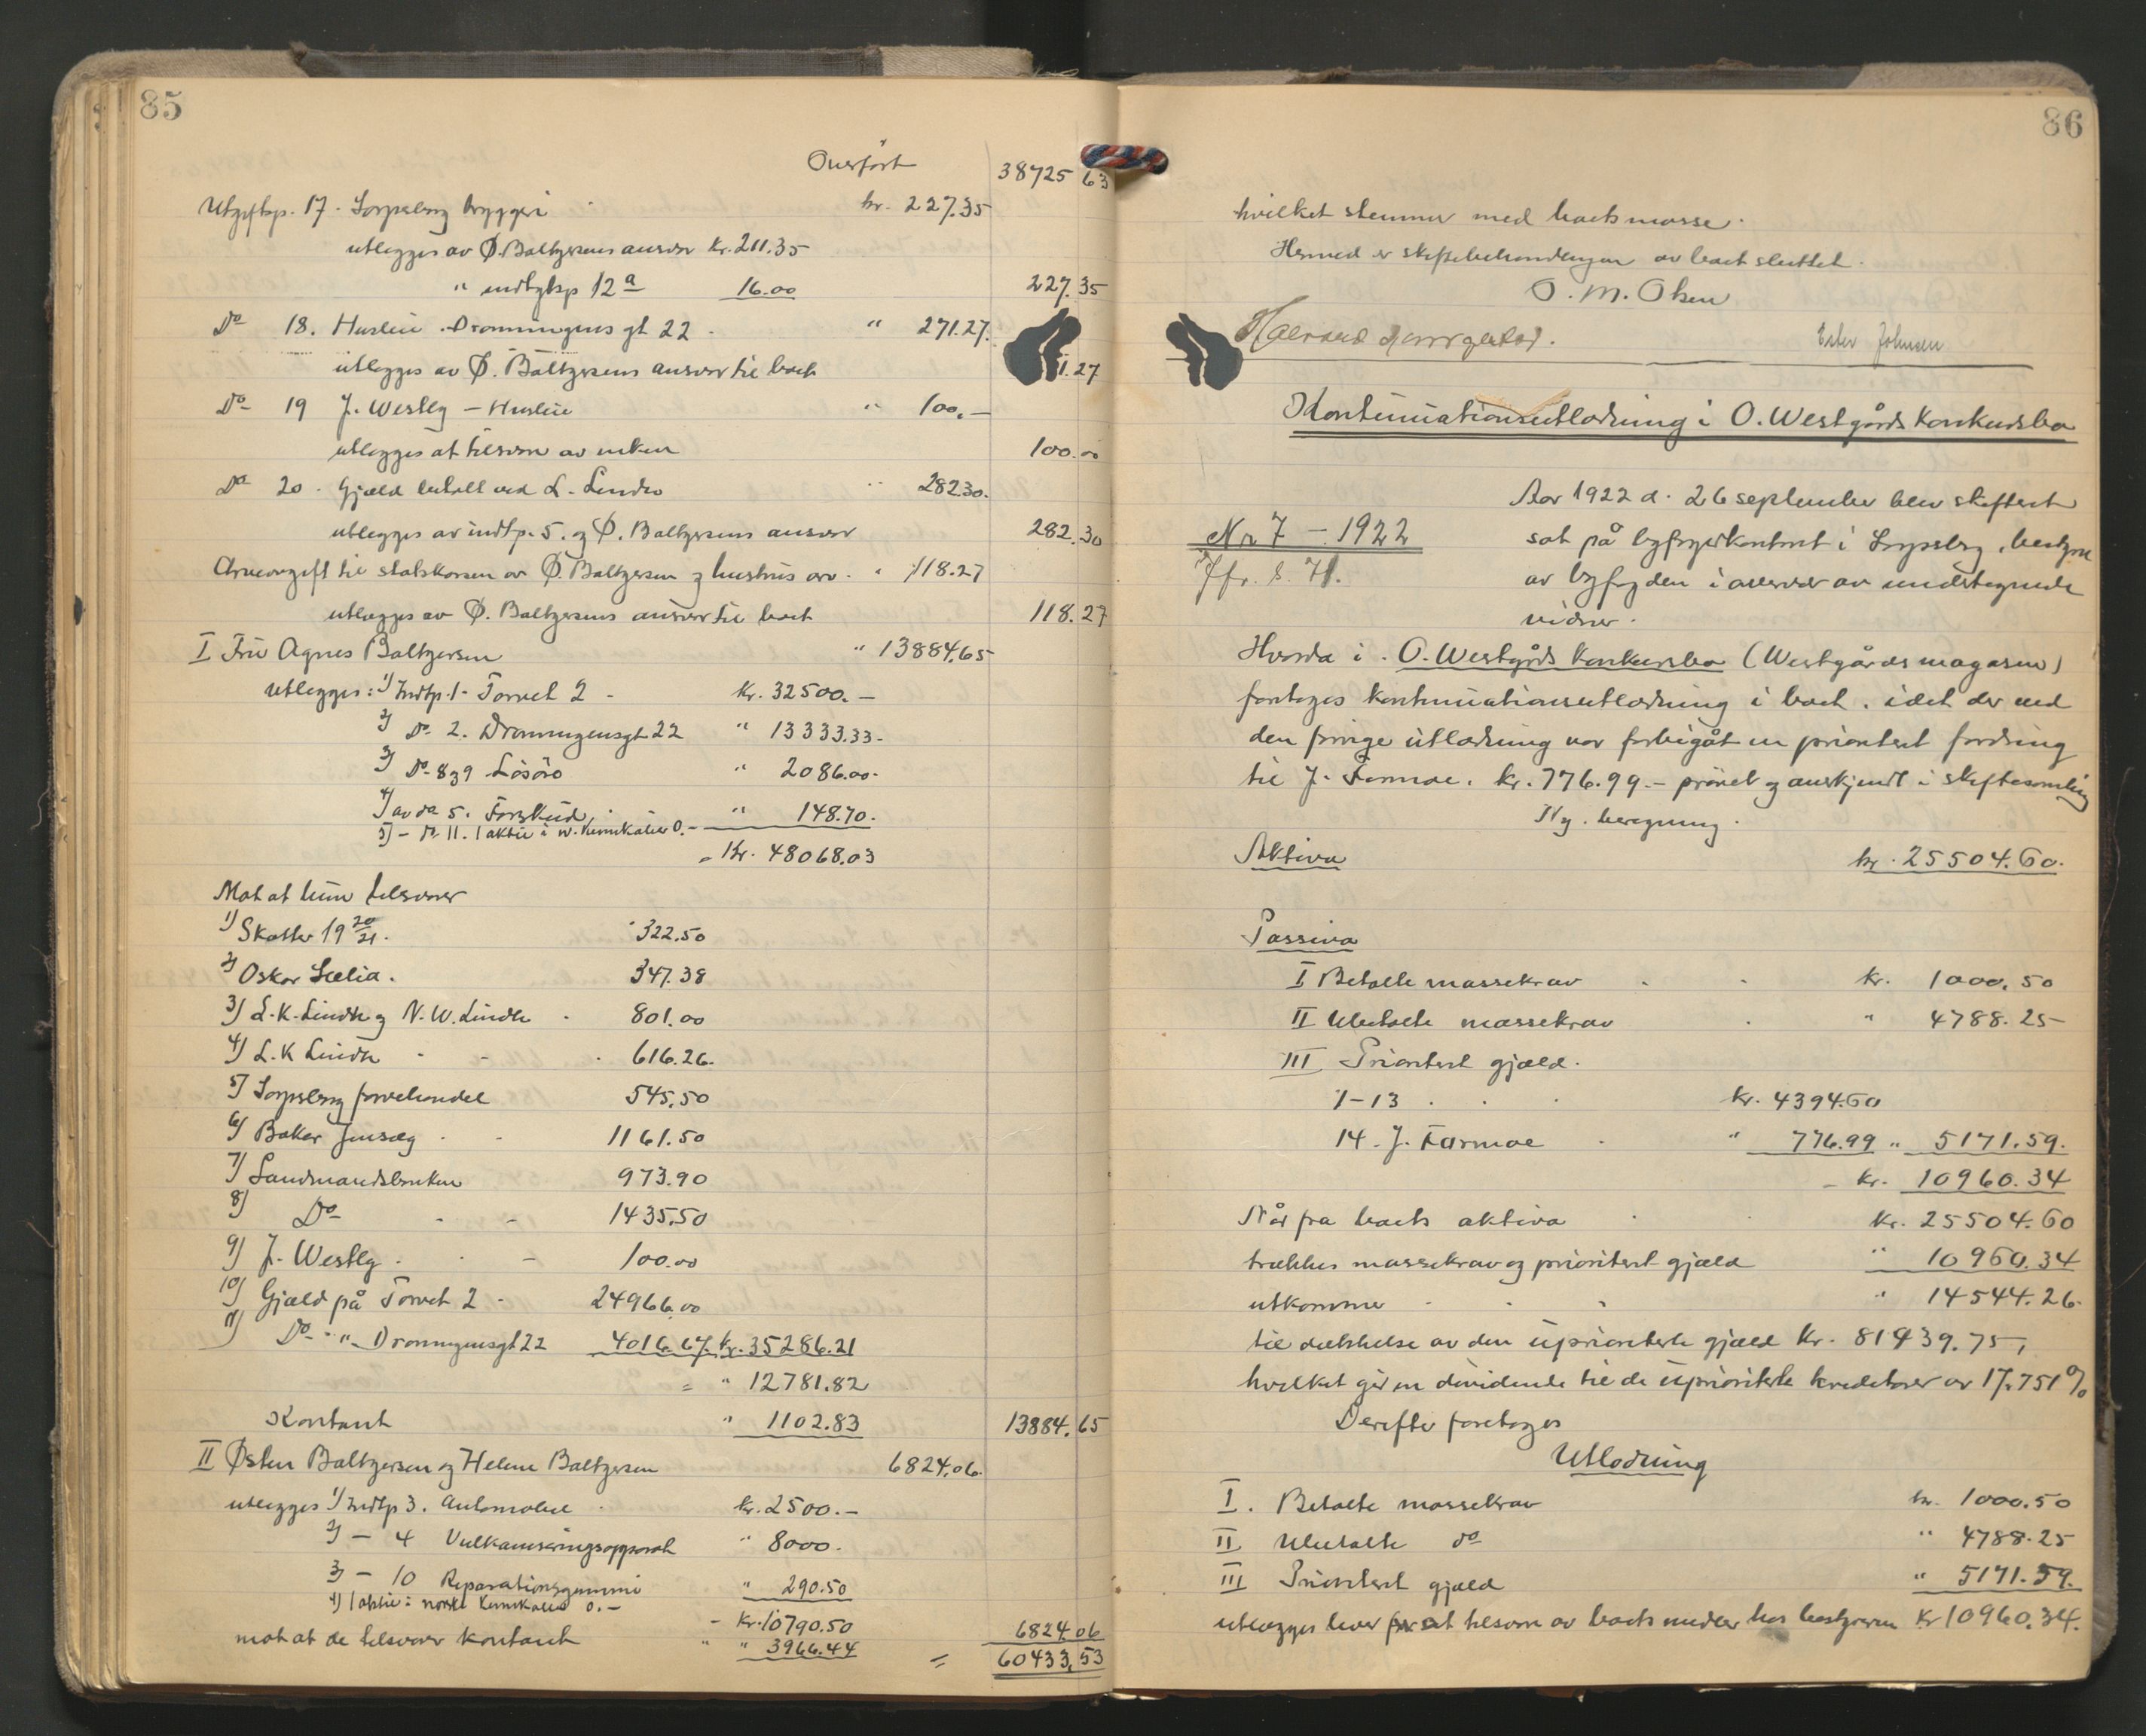 85
Overført 38725 63
Utgiftsp. 17. Sarpsborg bryggeri kr. 227.35
utlegges av Ø. Baltzersens ansvar kr. 211.35
" indtgtsp 12a 16.00 227.35
Do 18. Husleie Dronningens gt 22. " 271.27.
utlegges av Ø. Baltzersens ansvar til boet 1.27
Do 19 J. Westly - Husleie " 100.-
utlegges at tilsvare av enken 100.00
Do 20. Gjæld betalt ved L. Lindre " 282.30.
utlegges av indtp. 5. og Ø. Baltzersens ansvar 282.30
Arveavgift til statskassen av Ø. Baltzersen og hustrus arv. " 118.27
utlægges av Ø. Baltzersens ansvar til boet 118.27
I Fru Agnes Baltzersen " 13884.65
utlegges: 1) Indtp. 1 - Torvet 2 - kr. 32500.-
2) Do 2. Dronningensgt 22 " 13333.33-
3) Do 8 og 9 Løsøre " 2086.00-
4) av do 5. Forskud. " 148.70.
5) - Do 11. 1 aktie i n. Kemikalier 0.-
= Kr. 48068.03
Mot at hun tilsvarer
1) Skatter 19 20/21. 322.50
2) Oskar Lælia. 347.38
3) L.K. Lindre og N.W. Lindre 801.00
4) L.K Lindre - - 616.26.
5) Sarpsborg farvehandel 545.50
6) Baker Jensæg - - 1161.50
7) Landmandsbanken 973.90
8) Do - - 1435.50
9) J. Westly - - 100.00
10) Gjæld på Torvet 2 - 24966.00
11) Do " Dronningensgt 22 4016.67. kr. 35286.21
= " 12781.82
Kontant " 1102.83 13884.65
II Østen Baltzersen og Helene Baltzersen 6824.06.
utlegges 1) Indtp 3. Automobil kr. 2500.-
2) - 4 Vulkaniseringsapparat " 8000.
3) - 10 Reparationsgummi " 290.50
4) 1 aktie i norske Kemikalier 0.-
- Kr. 10790.50
mot at de tilsvarer kontant " 3966.44 6824.06
= 60433.53
86
hvilket stemmer med boets masse.
Hermed er skiftebehandlingen av boet sluttet.
O. M. Olsen
Ester Johnsen
Kontinuationsutlodning i O. Westgårds konkursbo
Nr 7 - 1922
Jfr. s. 71.
Aar 1922 d. 26 september blev skifteret
sat på byfogedkontoret i Sarpsborg, bestyret
av byfogden i overvær av undertegnede
vidner.
Hvorda i. O. Westgårds konkursbo (Westgårds magasin)
foretoges kontinuationsutlodning i boet. idet der ved
den forrige utlodning var forbigåt en prioritert fordring
til J. Formoe. kr. 776.99.- prøvet og anerkjendt i skiftesamling
Ny. beregning.
Aktiva kr. 25504.60.
Passiva
I Betalte massekrav - - kr. 1000.50
II Ubetalte massekrav . " 4788.25-
III Prioritert gjæld.
1-13 . . . kr. 4394.60
14. J. Formoe . " 776.99 " 5171.59.
- kr. 10960.34
Når fra boets aktiva . kr. 25504.60
trækkes massekrav og prioritert gjæld " 10960.34
utkommer - - - " 14544.26.
til dækkelse av den uprioriterte gjæld kr. 81939.75,
hvilket gir en dividende til de uprioriterte kreditorer av 17.751%
Derefter foretoges
Utlodning
I. Betalte massekrav kr. 1000.50
II Ubetalte do " 4788.25
III Prioritert gjæld " 5171.59.
utlægges hver for at tilsvare av boets midler hos bestyreren kr 10960.34.